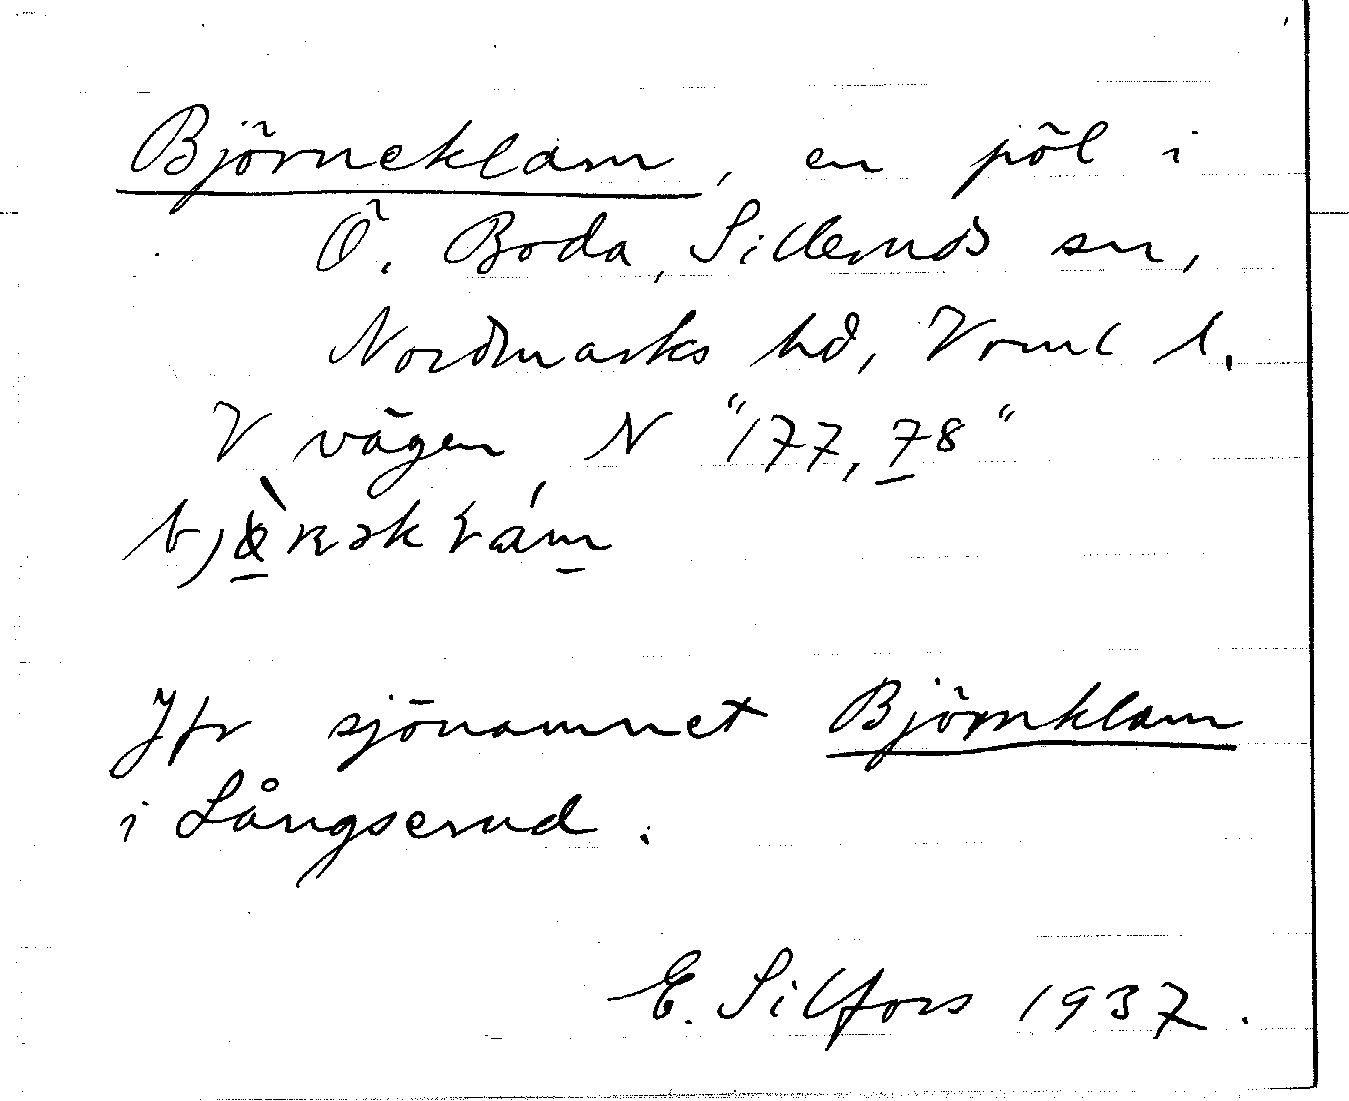 Björneklam, en pöl i
Ö. Boda, Silleruds sn,
Nordmarks hd, Vrml l.
V vägen N "177, 78"
Jfr sjönamnet Björnklam
i Långserud.
E. Silfors 1937.